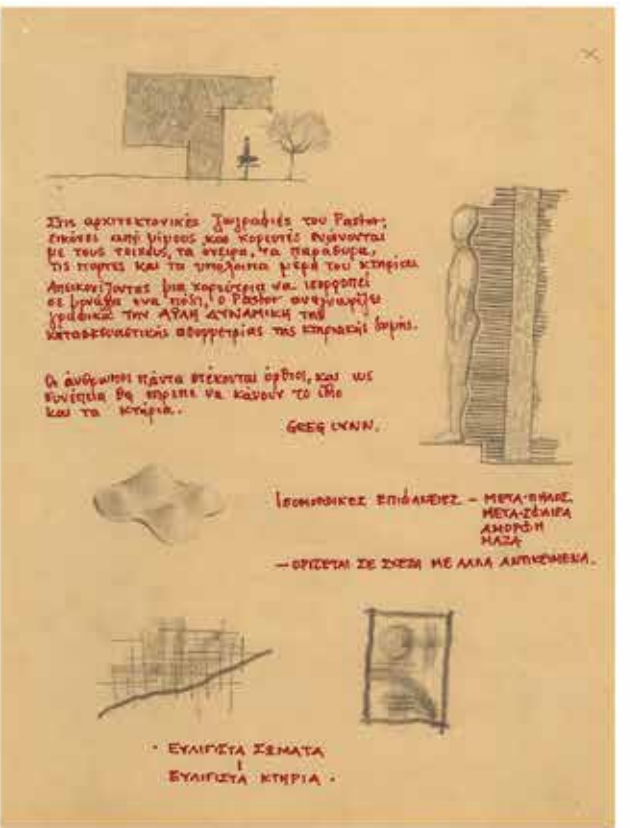 Στις αρχιτεκτονικές ζωγραφιές του Pastor,
εικόνες από μίμους και χορευτές ενώνονται
με τους τοίχους, τα όνειρα, τα παράθυρα,
τις πόρτες και τα υπόλοιπα μέρη του κτηρίου
Απεικονίζοντας μια χορεύτρια να ισορροπεί
σε μονάχα ένα πόδι, ο Pastor αναγνωρίζει
γραφικά την ΑΫΛΗ ΔΥΝΑΜΙΚΗ της
κατασκευαστικής ασυμμετρίας της κτηριακής δομής.
Οι άνθρωποι πάντα στέκονται όρθιοι, και ως
συνέπεια θα έπρεπε να κάνουν το ίδιο
και τα κτήρια.
GREG LYNN.
ΙΣΟΜΟΡΦΙΚΕΣ ΕΠΙΦΑΝΕΙΕΣ – ΜΕΤΑ-ΠΗΛΟΣ
ΜΕΤΑ-ΣΦΑΙΡΑ
ΑΜΟΡΦΗ
ΜΑΖΑ
– ΟΡΙΖΕΤΑΙ ΣΕ ΣΧΕΣΗ ΜΕ ΑΛΛΑ ΑΝΤΙΚΕΙΜΕΝΑ.
· ΕΥΛΙΓΙΣΤΑ ΣΩΜΑΤΑ
ΕΥΛΙΓΙΣΤΑ ΚΤΗΡΙΑ ·